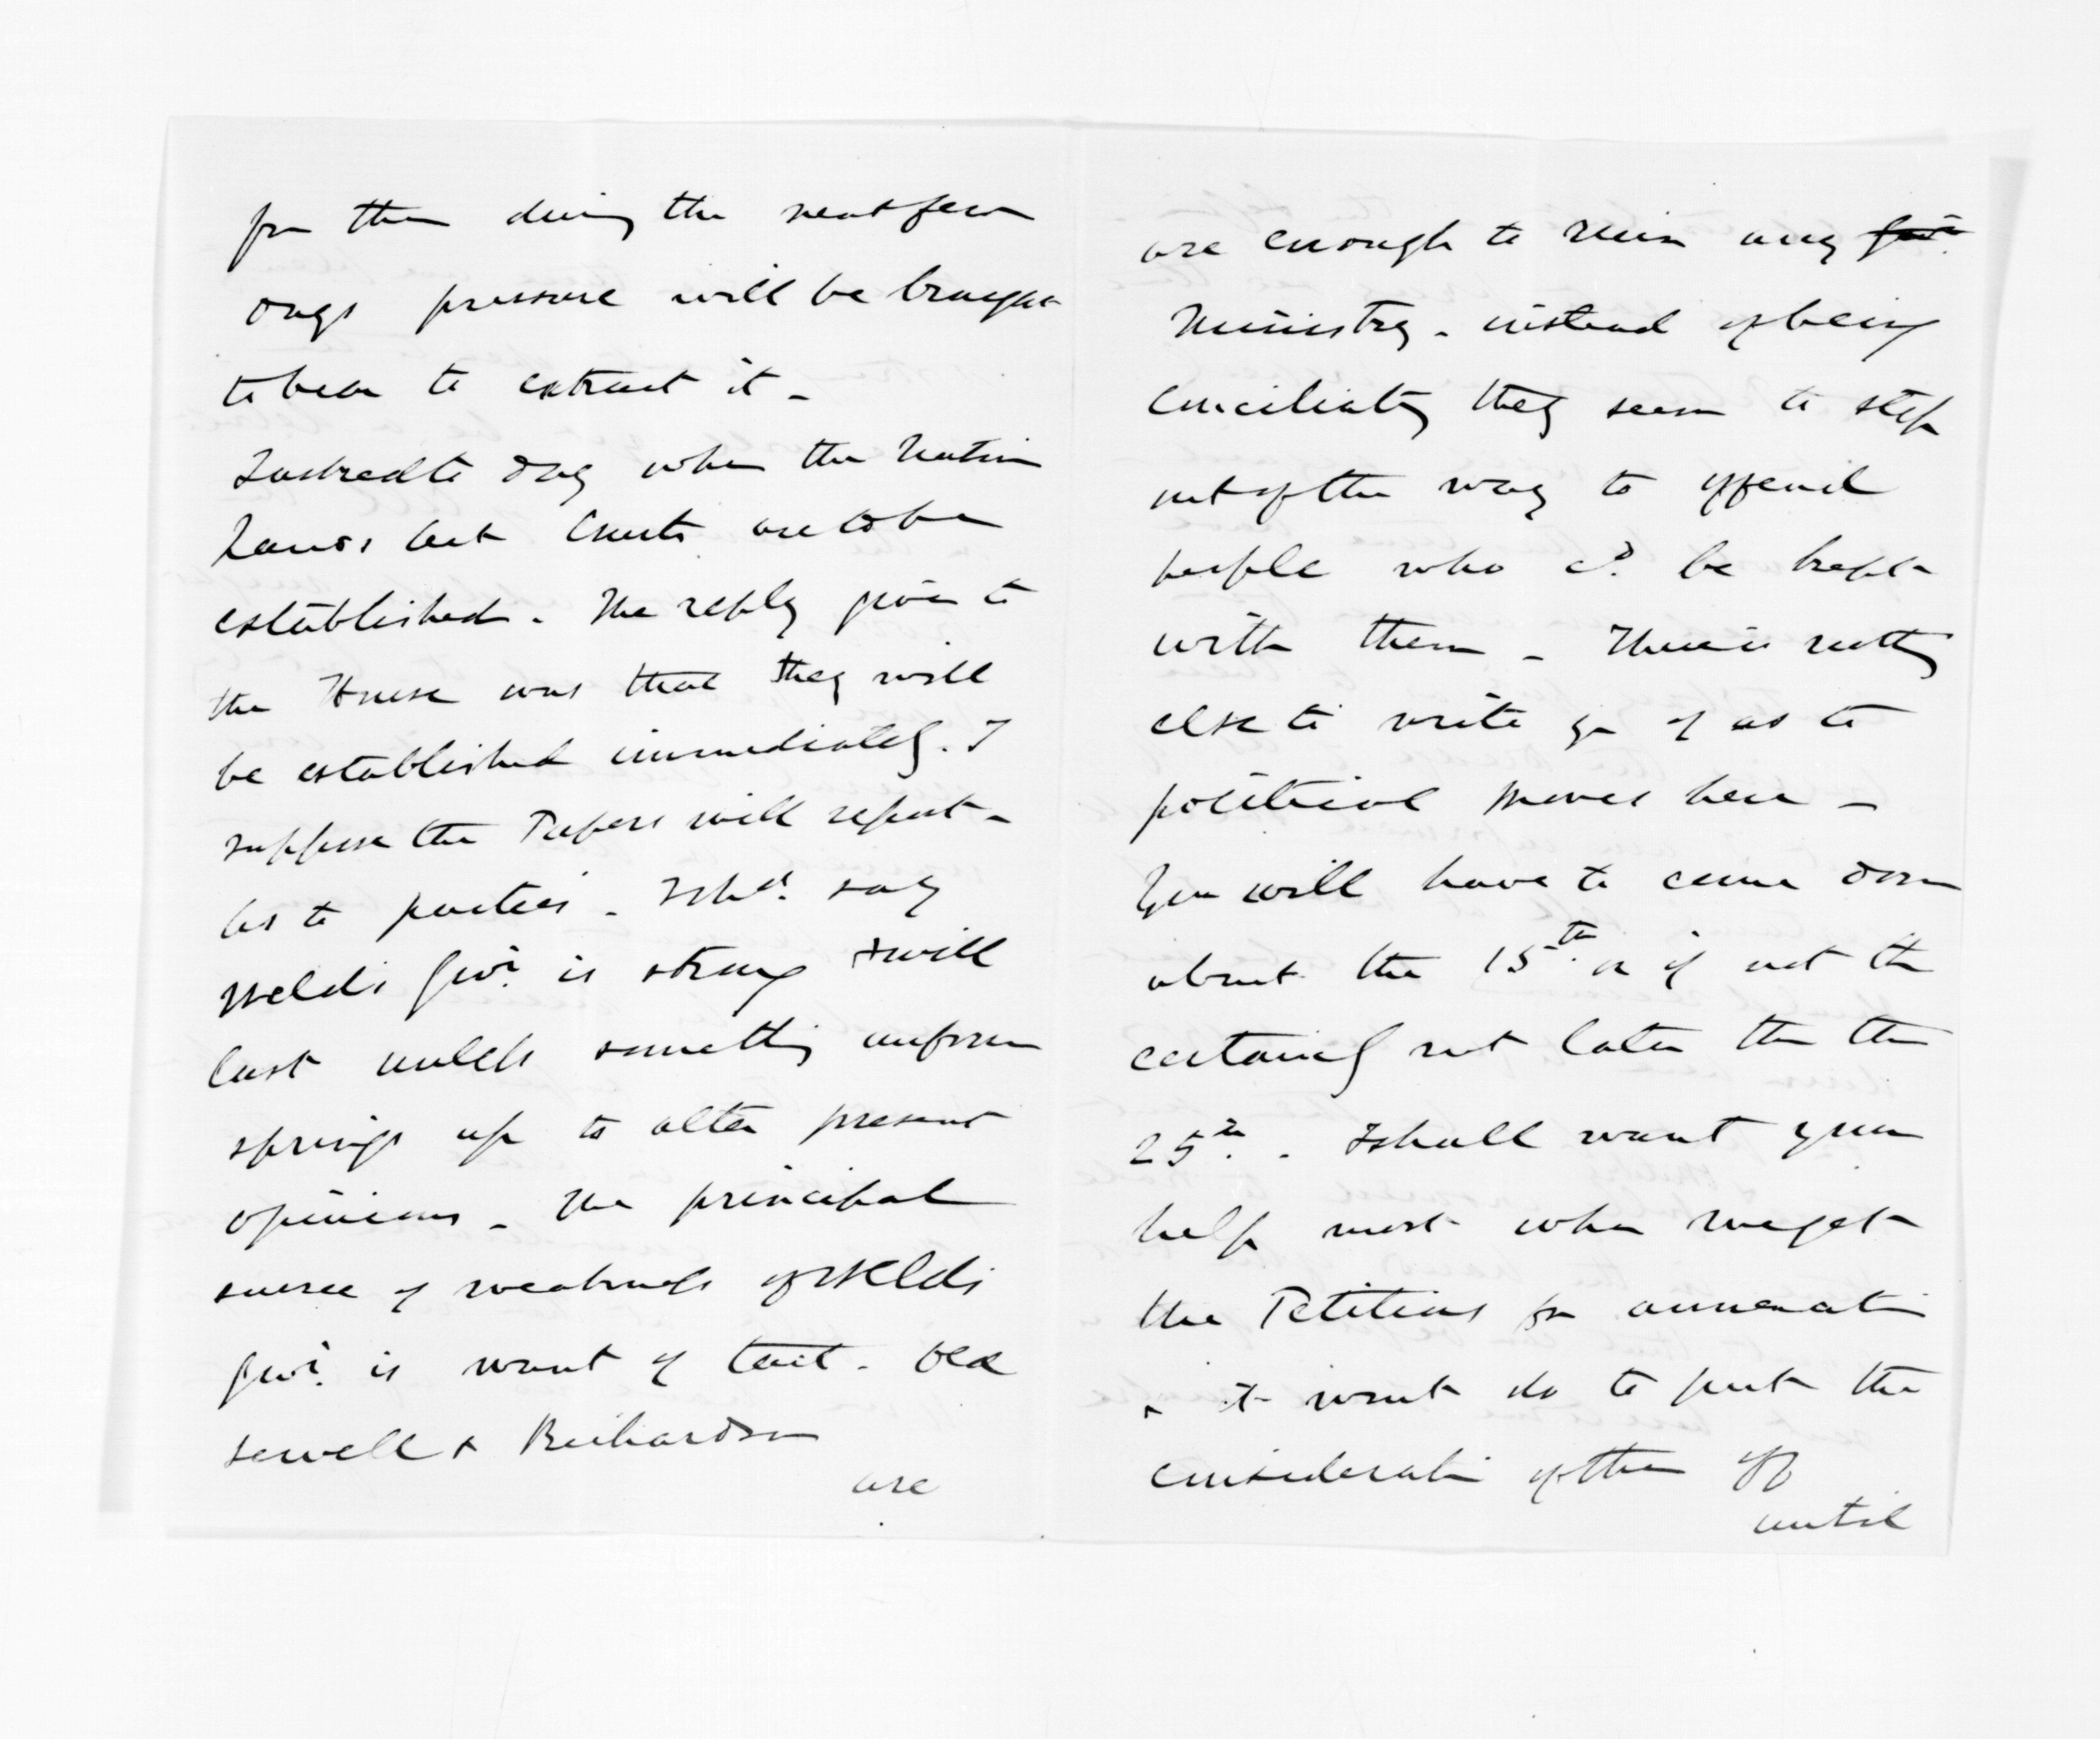 for them during the next few
days pressure will be brought
to bear to extract it -
I asked to day when the Native
Lands Act Courts are to be
established. The reply given to
the House was that they will
be established immediately. I
suppose the Papers will report -
As to parties - I shd. say
Weld's Govt. is strong & will
last unless something unforseen
springs up to alter present
opinions - The principal
source of weakness of Weld's
Govt. is want of tact - Old
Sewell & Richardson
are
are enough to ruin any Govt.
Ministry - instead of being
conciliatory they seem to step
out of the way to offend
people who cd. be kept
with them - There is nothing
else to write you of as to
political moves here -
You will have to come down
about the 15th. or if not then
certainly not later than the
25th. - I shall want your
help most when we get
the Petitions for annexation
& it wont do to put the
consideration of them off
until